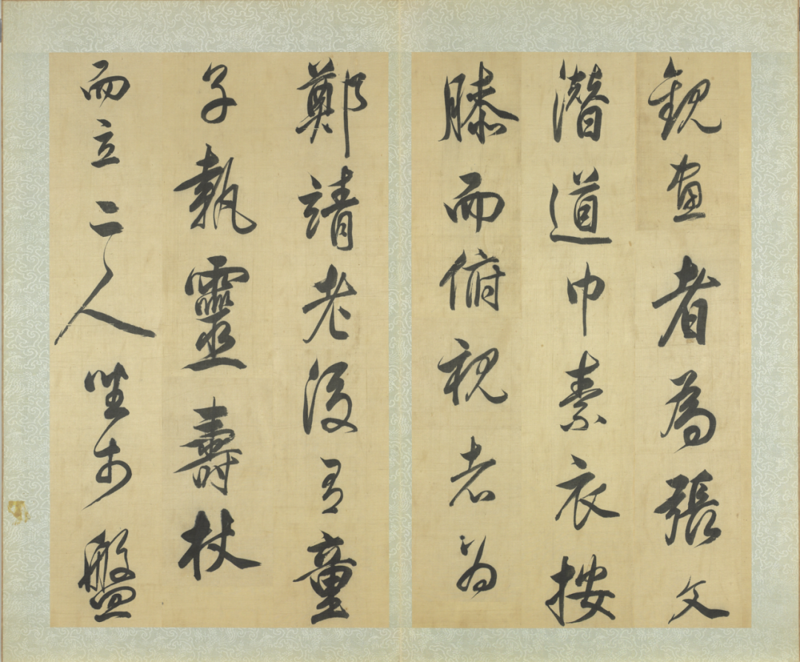 観畫者為張文
潛道巾素衣按
膝而俯視者為
鄭靖老後有童
子執靈壽杖
而立二人坐於盤